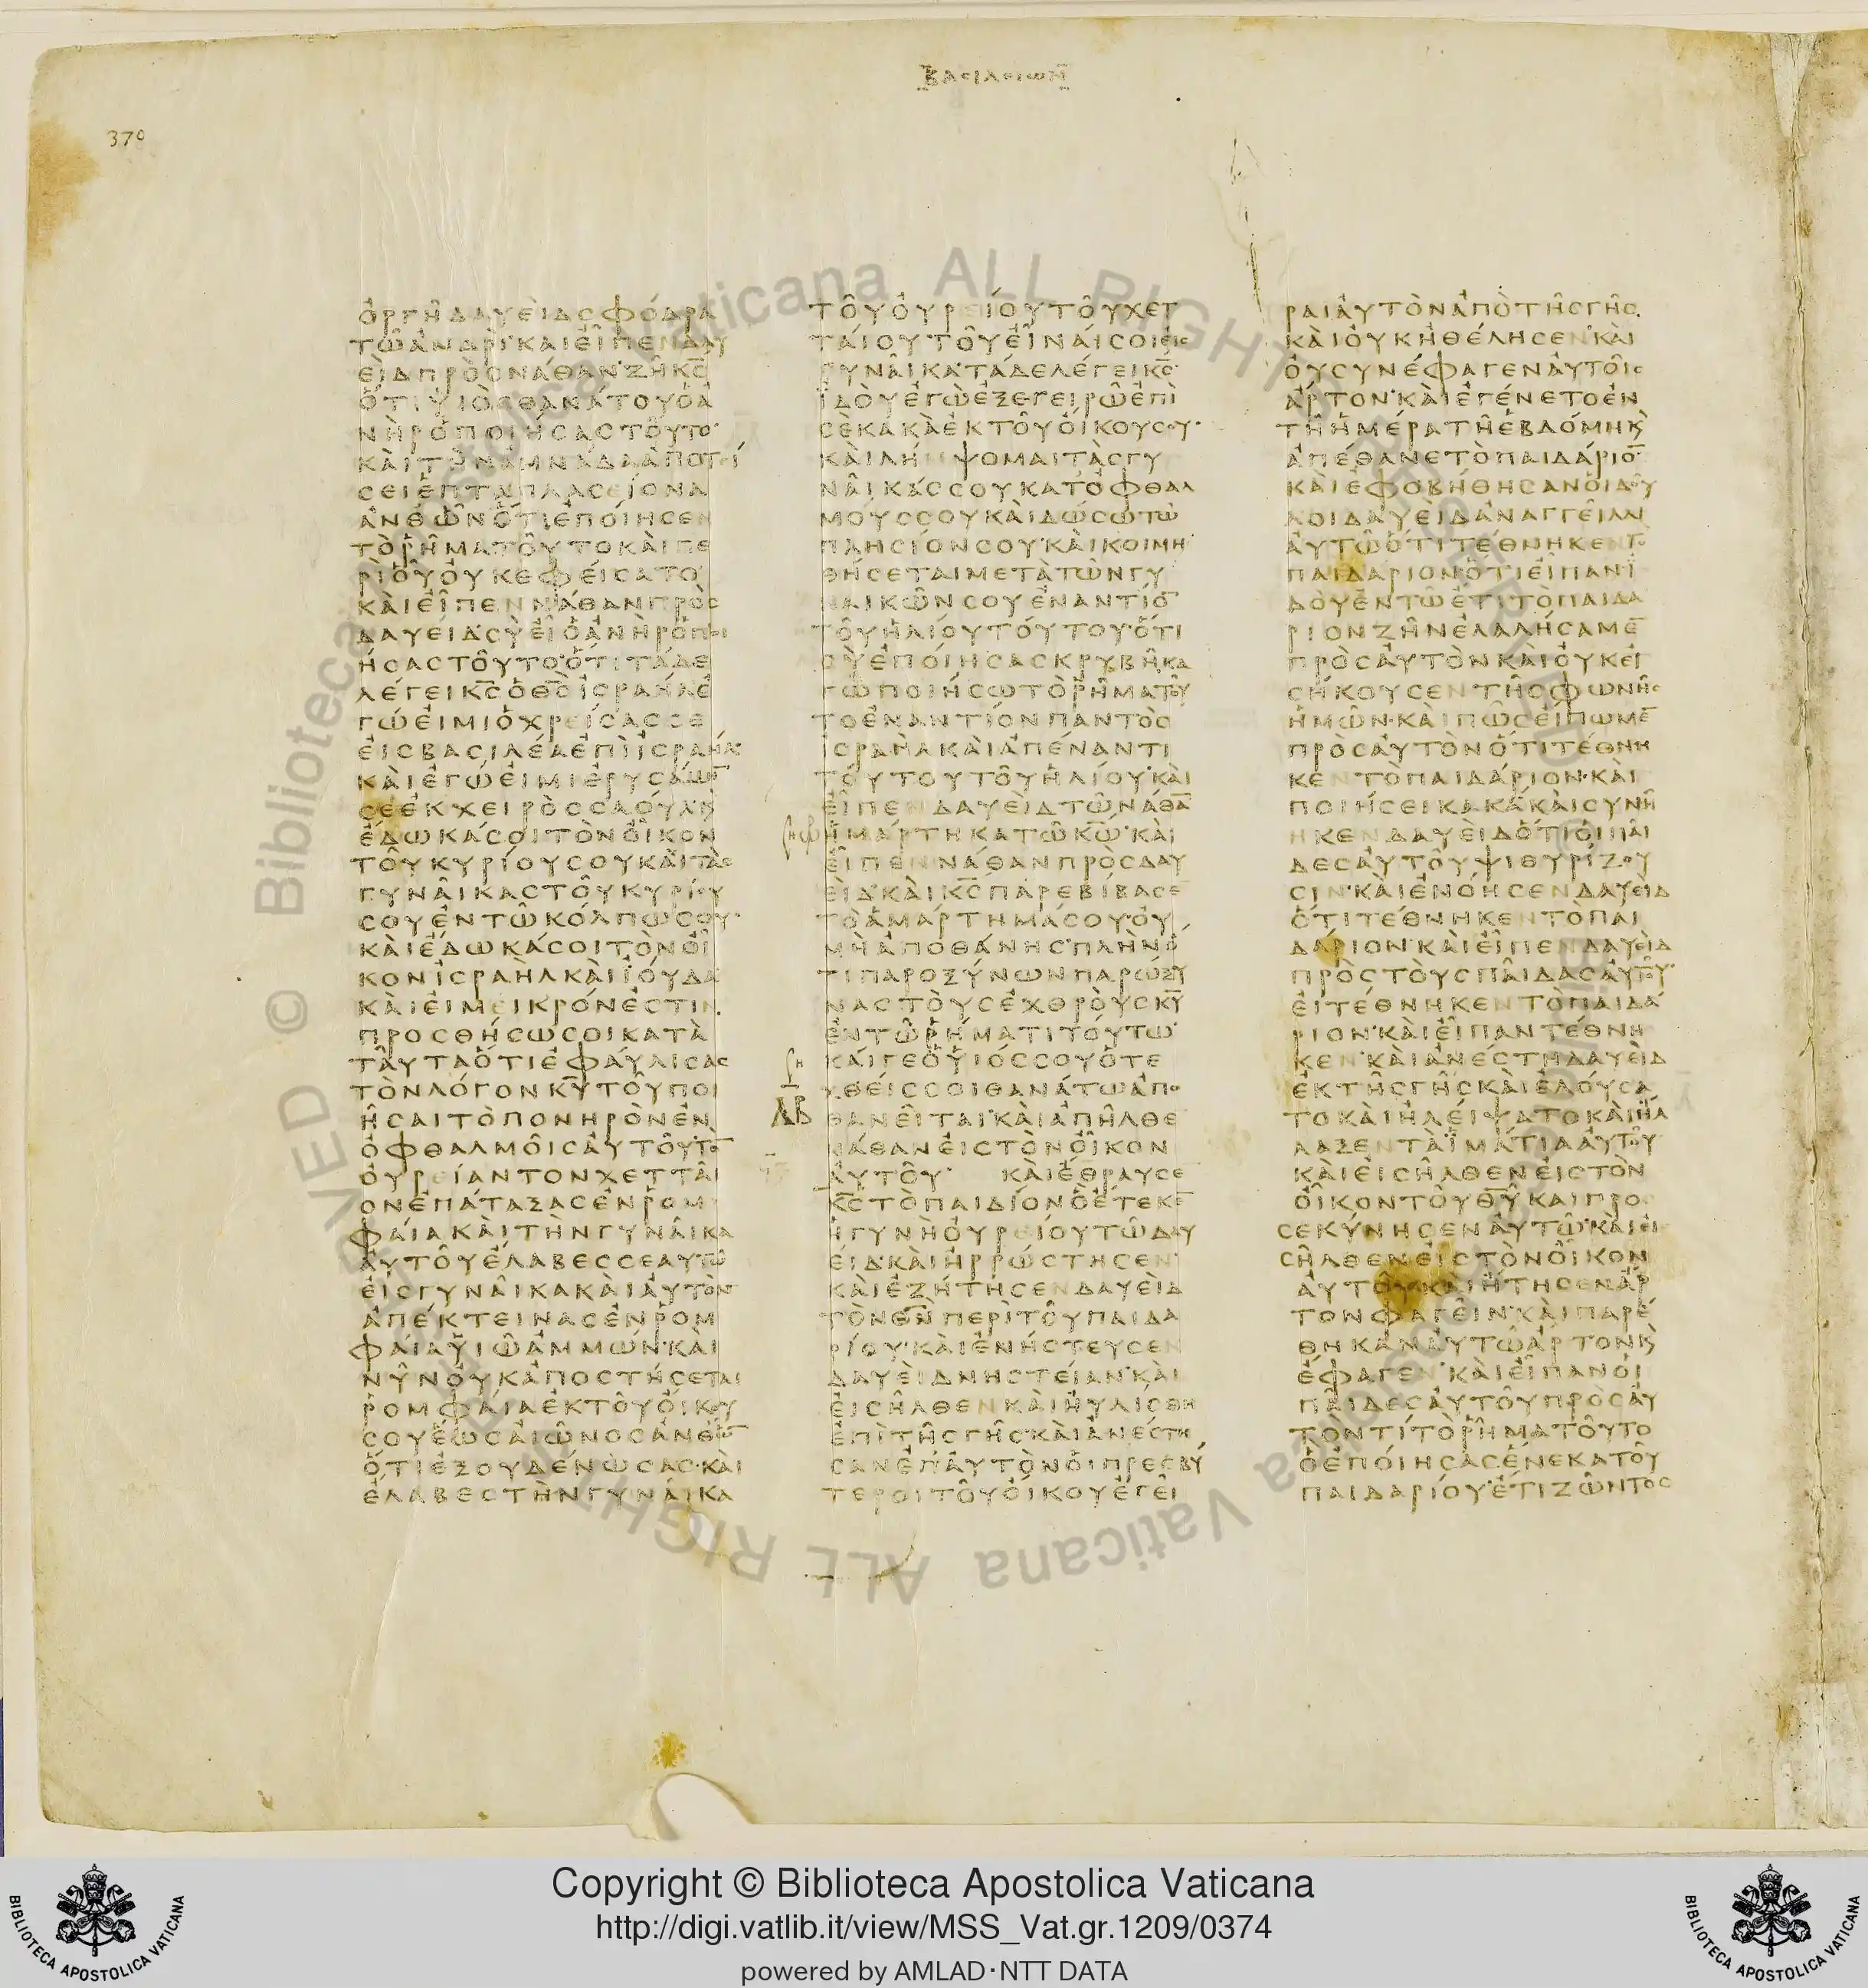 ΒΑΣΙΛΕΙΩΝ
370
ὈΡΓΗ͂ΔΑΥΕῚΔΣΦΌΔΡΑ
ΤΩ͂ἈΝΔΡΊ·ΚΑΙΕἾΠΕΝΔΑΥ
ΕῚΔΠΡῸΣΝΆΘΑΝ·ΖΗ͂Κ̅Σ̅
ὍΤΙΥἹῸΣΘΑΝΆΤΟΥὉἈ
ΝῊΡὉΠΟΙΉΣΑΣΤΟΥ͂ΤΟ·
ΚΑῚΤῊΝἈΜΝΆΔΑἈΠΟΤΕΊ
ΣΕΙἙΠΤΑΠΛΑΣΕΊΟΝΑ
ἈΝΘΩ͂ΝὍΤΙἘΠΟΊΗΣΕΝ
ΤῸΡΗ͂ΜΑΤΟΥ͂ΤΟΚΑῚΠΕ
ΡῚὉΥ͂ὈΥΚΕΦΕΊΣΑΤΟ
ΚΑῚΕἾΠΕΝΝΆΘΑΝΠΡῸΣ
ΔΑΥΕΊΔ·ΣῪΕἾὉἈΝῊΡὉΠΟΙ
ΉΣΑΣΤΟΥ͂ΤΟ·ὍΤΙΤΆΔΕ
ΛΈΓΕΙΚ̅Σ̅ὉΘ̅Σ̅ἸΣΡΑῊΛἘ
ΓΏΕἸΜΙὉΧΡΕΊΣΑΣΣΕ
ΕἸΣΒΑΣΙΛΈΑἘΠῚἸΣΡΑΉΛ·
ΚΑῚἘΓΏΕἸΜΙἘΡΥΣΆΜ̅
ΣΕἘΚΧΕΙΡῸΣΣΑΟΎΛΚ̀
ἜΔΩΚΆΣΟΙΤῸΝΟἾΚΟΝ
ΤΟΥ͂ΚΥΡΊΟΥΣΟΥΚΑῚΤᾺΣ
ΓΥΝΑΙ͂ΚΑΣΤΟΥ͂ΚΥΡΊΟΥ
ΣΟΥἘΝΤΩ͂ΚΌΛΠΩΣΟΥ·
ΚΑῚἜΔΩΚΆΣΟΙΤῸΝΟἾ
ΚΟΝἸΣΡΑῊΛΚΑῚἸΟΎΔΑ
ΚΑῚΕἸΜΕΙΚΡΌΝἘΣΤΙΝ
ΠΡΟΣΘΉΣΩΣΟΙΚΑΤᾺ
ΤΑΥ͂ΤΑὍΤΙἘΦΑΎΛΙΣΑΣ
ΤῸΝΛΌΓΟΝΚ̅Υ̅ΤΟΥ͂ΠΟΙ
Η͂ΣΑΙΤῸΠΟΝΗΡῸΝἘΝ
ὈΦΘΑΛΜΟΙ͂ΣἈΥΤΟΥ͂ΤῸ̅
ὈΥΡΕΊΑΝΤΟΝΧΕΤΤΑΙ͂
ΟΝἘΠΆΤΑΞΑΣἘΝΡΟΜ
ΦΑΊΑΚΑῚΤῊΝΓΥΝΑΙ͂ΚΑ
ἈΥΤΟΥ͂ἜΛΑΒΕΣΣΕΑΥΤΩ͂
ΕἸΣΓΥΝΑΙ͂ΚΑΚΑῚἈΥΤῸΝ
ἈΠΈΚΤΕΙΝΑΣἘΝΡΟΜ
ΦΑΊΑΥἹΩ͂ΝἈΜΜΏΝ·ΚΑῚ
ΝΥ͂ΝὈΥΚἈΠΟΣΤΉΣΕΤΑΙ
ΡΟΜΦΑΊΑἘΚΤΟΥ͂ὈΊΚΟΥ
ΣΟΥἝΩΣἈΙΩ͂ΝΟΣἈΝΘΩ͂̅
ὍΤΙἘΞΟΥΔΈΝΩΣΑΣ·ΚΑῚ
ἜΛΑΒΕΣΤῊΝΓΥΝΑΙ͂ΚΑ
ΤΟΥ͂ὈΥΡΕΊΟΥΤΟΥ͂ΧΕΤ
ΤΑΊΟΥΤΟΥ͂ΕἾΝΑΊΣΟΙΕἸΣ
ΓΥΝΑΙ͂ΚΑ·ΤΆΔΕΛΈΓΕΙΚ̅Σ̅·
ἸΔΟῪἘΓῺἘΞΕΓΕΙΡΩ͂ἘΠῚ
ΣῈΚΑΚᾺἘΚΤΟΥ͂ὈΊΚΟΥΣΟΥ·
ΚΑῚΛΗΜΨΟΜΑΙΤᾺΣΓΥ
ΝΑΙ͂ΚΆΣΣΟΥΚΑΤὈΦΘΑΛ
ΜΟΎΣΣΟΥΚΑῚΔΏΣΩΤΩ͂
ΠΛΗΣΊΟΝΣΟΥ·ΚΑῚΚΟΙΜΗ
ΘΉΣΕΤΑΙΜΕΤᾺΤΩ͂ΝΓΥ
ΝΑΙΚΩ͂ΝΣΟΥἘΝΑΝΤΊΟ̅
ΤΟΥ͂ἩΛΊΟΥΤΟΎΤΟΥ·ὍΤΙ
ΣῪἘΠΟΊΗΣΑΣΚΡΥΒΗ͂ΚΑ
ΓΏΠΟΙΉΣΩΤῸΡΗ͂ΜΑΤΟΥ͂
ΤΟἘΝΑΝΤΊΟΝΠΑΝΤῸΣ
ἸΣΡΑῊΛΚΑῚἈΠΈΝΑΝΤΙ
ΤΟΎΤΟΥΤΟΥ͂ἩΛΊΟΥ·ΚΑῚ
ΕἾΠΕΝΔΑΥΕῚΔΤΩ͂ΝΆΘΑ̅
ἩΜΆΡΤΗΚΑΤΩ͂Κ̅Ω̅·ΚΑῚ
ΕἾΠΕΝΝΆΘΑΝΠΡῸΣΔΑΥ
ΕῚΔ·ΚΑῚΚ̅Σ̅ΠΑΡΕΒΊΒΑΣΕ̅
ΤῸἉΜΆΡΤΗΜΆΣΟΥ·ὈΥ
ΜῊἈΠΟΘΆΝΗΣ·ΠΛῊΝὉ
ΤΙΠΑΡΟΞΎΝΩΝΠΑΡΏΞΥ
ΝΑΣΤΟῪΣἘΧΘΡΟῪΣΚ̅Υ̅
ἘΝΤΩ͂ΡΉΜΑΤΙΤΟΎΤΩ·
ΚΑΊΓΕὉΥἹΌΣΣΟΥὉΤΕ
ΧΘΕΊΣΣΟΙΘΑΝΆΤΩἈΠΟ
ΛΒ ΘΑΝΕΙ͂ΤΑΙ·ΚΑῚἈΠΗ͂ΛΘΕ
ΝΆΘΑΝΕἸΣΤῸΝΟἾΚΟΝ
ἈΥΤΟΥ͂ ΚΑῚἜΘΡΑΥΣΕ
Κ̅Σ̅ΤῸΠΑΙΔΊΟΝὉἜΤΕΚΕ̅
ἩΓΥΝῊὈΥΡΕΊΟΥΤΩ͂ΔΑΥ
ΕῚΔΚΑῚἨΡΡΏΣΤΗΣΕΝ·
ΚΑῚἘΖΉΤΗΣΕΝΔΑΥΕῚΔ
ΤῸΝΘ̅Ν̅ΠΕΡῚΤΟΥ͂ΠΑΙΔΑ
ΡΊΟΥ·ΚΑῚἘΝΉΣΤΕΥΣΕΝ
ΔΑΥΕῚΔΝΗΣΤΕΊΑΝ·ΚΑῚ
ΕἸΣΗ͂ΛΘΕΝΚΑῚἨΥΛΊΣΘΗ
ἘΠῚΤΗ͂ΣΓΗ͂Σ·ΚΑῚἈΝΈΣΤΗ
ΣΑΝἘΠἈΥΤῸΝὉΙΠΡΕΣΒΎ
ΤΕΡΟΙΤΟΥ͂ὈΊΚΟΥἘΓΕΙ͂
ΡΑΙἈΥΤῸΝἈΠῸΤΗ͂ΣΓΗ͂Σ
ΚΑῚὈΥΚἨΘΈΛΗΣΕΝ·ΚΑῚ
ὈΥΣΥΝΈΦΑΓΕΝἈΥΤΟΙ͂Σ
ἌΡΤΟΝ·ΚΑῚἘΓΈΝΕΤΟἘΝ
ΤΗ͂ἩΜΈΡΑΤΗ͂ἙΒΔΌΜΗΚ̀
ἈΠΈΘΑΝΕΤῸΠΑΙΔΆΡΙΟ̅
ΚΑῚἘΦΟΒΉΘΗΣΑΝὉΙΔΟΥ͂
ΛΟΙΔΑΥΕῚΔἈΝΑΓΓΕΙ͂ΛΑΙ
ἈΥΤΩ͂ὍΤΙΤΈΘΝΗΚΕΝΤΟ
ΠΑΙΔΆΡΙΟΝὍΤΙΕἾΠΑΝἸ
ΔΟῪἘΝΤΩ͂ἜΤΙΤῸΠΑΙΔΑ
ΡΙΟΝΖΗ͂ΝἘΛΑΛΉΣΑΜΕ̅
ΠΡῸΣἈΥΤῸΝΚΑῚὈΥΚΕἸ
ΣΉΚΟΥΣΕΝΤΗ͂ΣΦΩΝΗ͂Σ
ἩΜΩ͂Ν·ΚΑῚΠΩ͂ΣΕἼΠΩΜΕ̅
ΠΡῸΣἈΥΤῸΝὍΤΙΤΈΘΝΗ
ΚΕΝΤῸΠΑΙΔΆΡΙΟΝ·ΚΑῚ
ΠΟΙΉΣΕΙΚΑΚΆ·ΚΑῚΣΥΝΗ͂
ΗΚΕΝΔΑΥΕῚΔὍΤΙὉΙΠΑΙ͂
ΔΕΣἈΥΤΟΥ͂ΨΙΘΥΡΊΖΟΥ
ΣΙΝ·ΚΑῚἘΝΌΗΣΕΝΔΑΥΕῚΔ
ὍΤΙΤΈΘΝΗΚΕΝΤῸΠΑΙ
ΔΆΡΙΟΝ·ΚΑῚΕἾΠΕΝΔΑΥΕῚΔ
ΠΡῸΣΤΟῪΣΠΑΙ͂ΔΑΣἈΥΤΟΥ͂·
ΕἸΤΈΘΝΗΚΕΝΤῸΠΑΙΔΆ
ΡΙΟΝ·ΚΑῚΕἾΠΑΝΤΈΘΝΗ
ΚΕΝ·ΚΑῚἈΝΈΣΤΗΔΑΥΕῚΔ
ἘΚΤΗ͂ΣΓΗ͂ΣΚΑῚἘΛΟΎΣΑ
ΤΟΚΑῚἨΛΕΊΨΑΤΟΚΑῚἬΛ
ΛΑΞΕΝΤᾺἹΜΆΤΙΑἈΥΤΟΥ͂·
ΚΑῚΕἸΣΗ͂ΛΘΕΝΕἸΣΤῸΝ
ΟἾΚΟΝΤΟΥ͂Θ̅Υ̅ΚΑΙΠΡΟΣ
ΣΕΚΎΝΗΣΕΝἈΥΤΩ͂·ΚΑῚΕἸ
ΣΗ͂ΛΘΕΝΕἸΣΤῸΝΟἾΚΟΝ
ἈΥΤΟΥ͂ΚΑῚἬΤΗΣΕΝἌΡ
ΤΟΝΦΑΓΕΙ͂Ν·ΚΑῚΠΑΡΈ
ΘΗΚΑΝἈΥΤΩ͂ἌΡΤΟΝΚ̀
ἜΦΑΓΕΝ·ΚΑῚΕἾΠΑΝὉΙ
ΠΑΙ͂ΔΕΣἈΥΤΟΥ͂ΠΡῸΣἈΥ
ΤῸΝΤΊΤῸΡΗ͂ΜΑΤΟΥ͂ΤΟ
ὉἘΠΟΊΗΣΑΣἝΝΕΚΑΤΟΥ͂
ΠΑΙΔΑΡΊΟΥἜΤΙΖΩ͂ΝΤΟΣ
Copyright © Biblioteca Apostolica Vaticana
http://digi.vatlib.it/view/MSS_Vat.gr.1209/0374
powered by AMLAD·NTT DATA
BIBLIOTECA APOSTOLICA VATICANA
BIBLIOTECA APOSTOLICA VATICANA